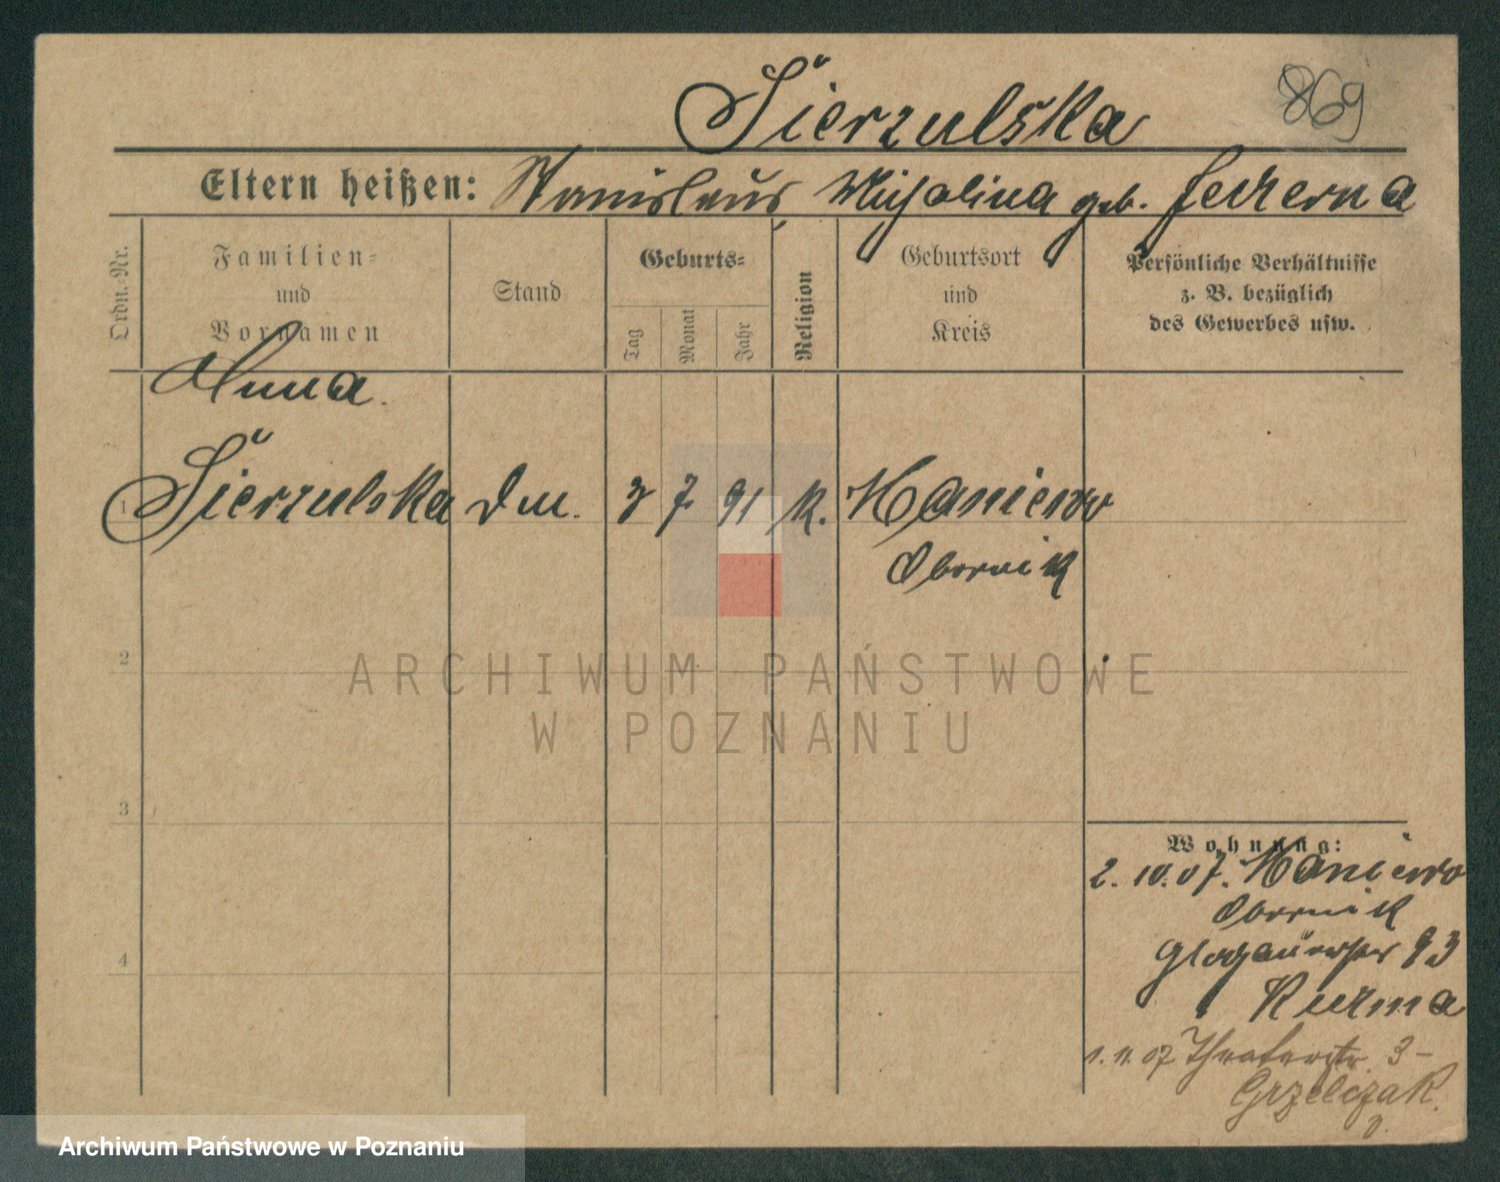 Sierzulska
869
Eltern heißen: Stanislaus, Michalina geb.
Ordn.-Nr.
Familien- und Vornamen
Stand
Geburts-
Tag
Monat
Jahr
Religion
Geburtsort und Kreis
Persönliche Verhältnisse
z. B. bezüglich
des Gewerbes usw.
Anna.
1 Sierzulska 3 7 91 K. Maniewo
Obornik
2
3
4
Wohnung:
2. 10. 07. Maniewo
Obornik
Glogauerstr 93
1. 11. 07 Theaterstr. 3 -
Grzelczak.
ARCHIWUM PAŃSTWOWE
W POZNANIU
Archiwum Państwowe w Poznaniu